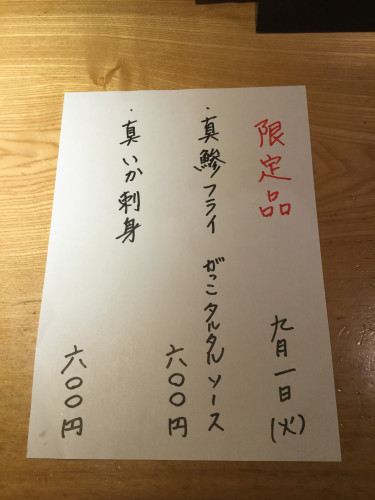 限定品
九月一日(火)
・真鯵フライ がっこタルタルソース
六〇〇円
・真いか刺身
六〇〇円